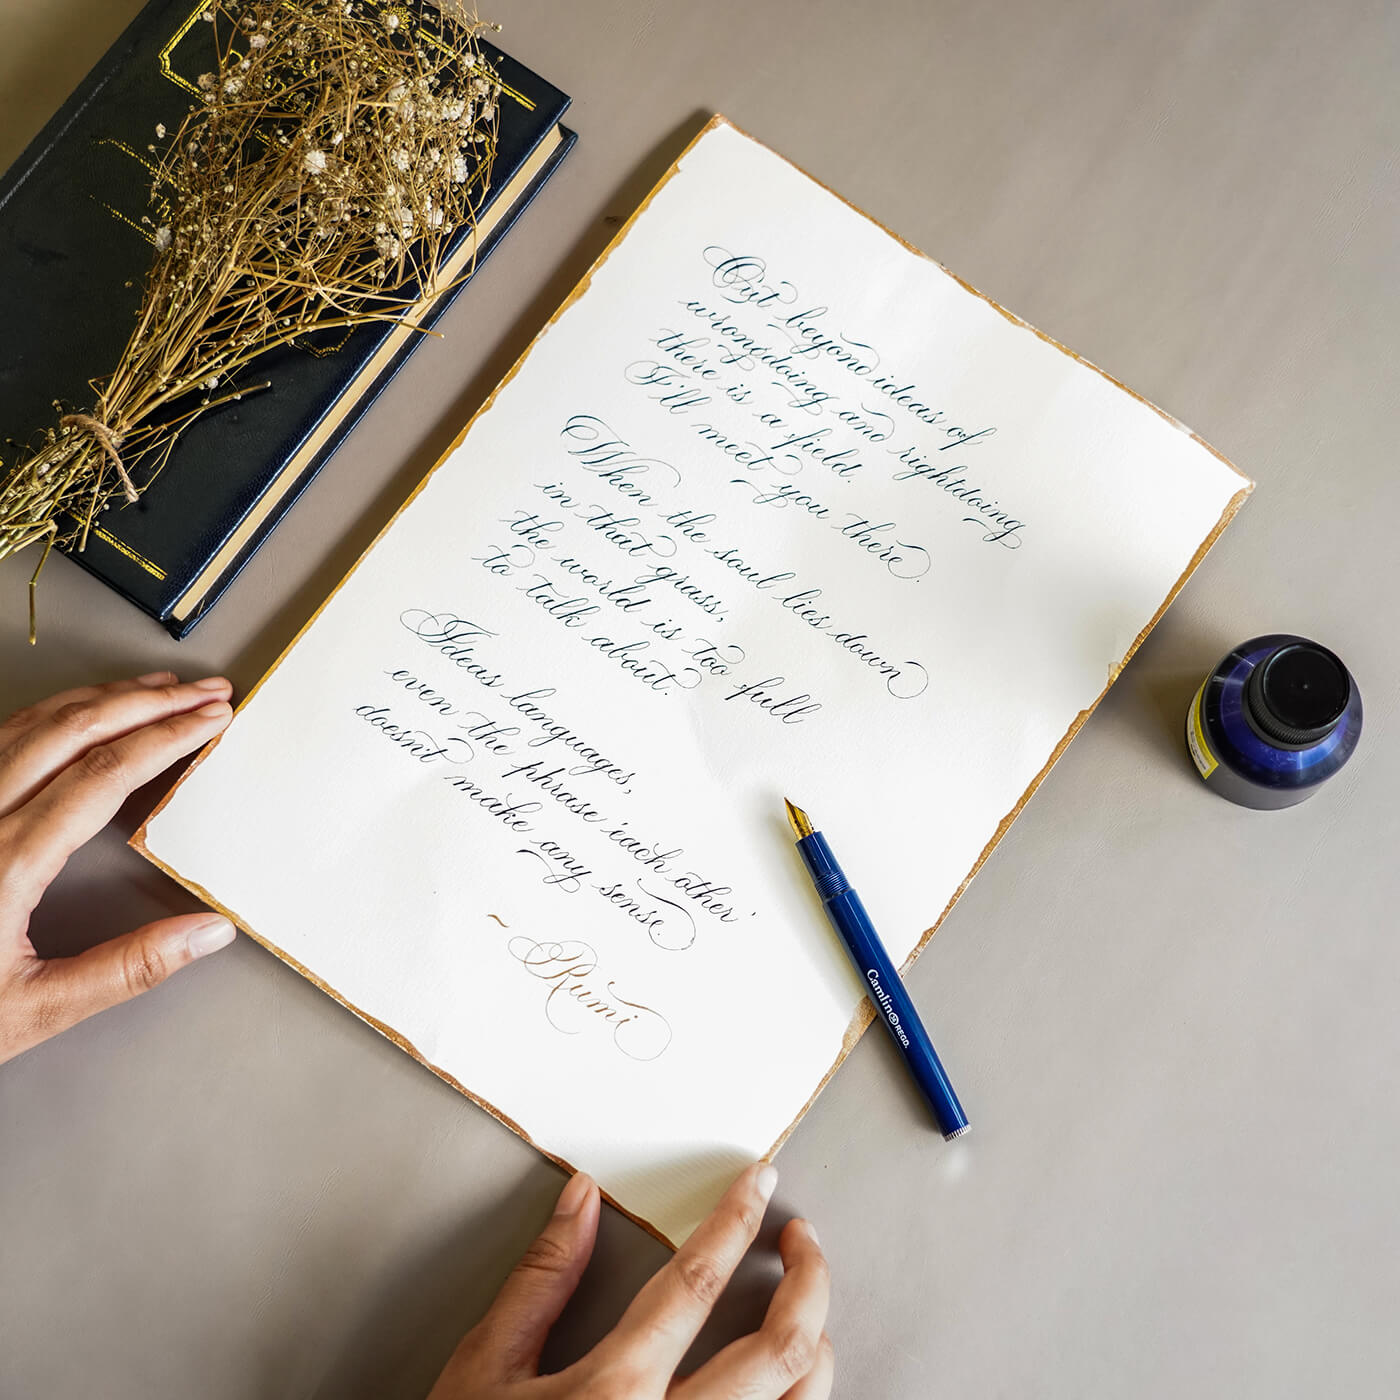 Out beyond ideas of
wrongdoing and rightdoing
there is a field.
I'll meet you there.
When the soul lies down
in that grass,
the world is too full
to talk about.
Ideas languages,
even the phrase 'each other'
doesn't make any sense.
~ Rumi
Camlin REGD.